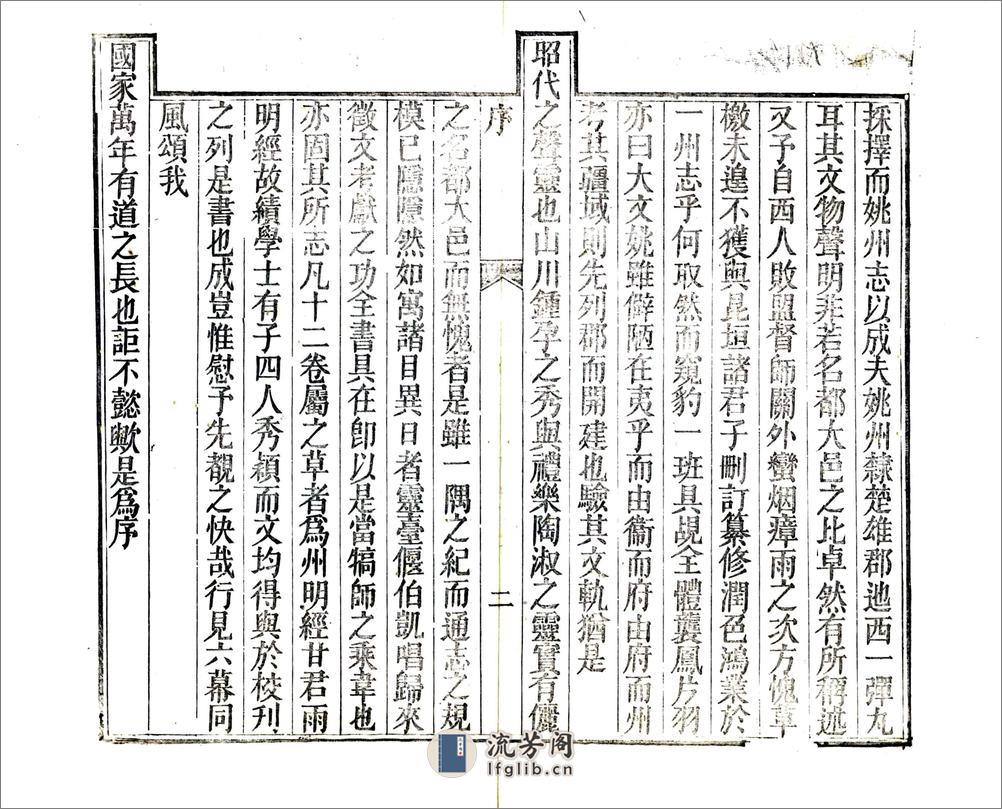 採擇而姚州志以成夫姚州隸楚雄郡迆西一彈丸
耳其文物聲明非若名都大邑之比卓然有所稱述
又予自西人敗盟督師關外蠻烟瘴雨之次方愧草
檄未遑不獲與昆垣諸君子刪訂纂修潤色鴻業於
一州志乎何取然而窺豹一班具覘全體襲鳳片羽
亦曰大文姚雖僻陋在夷乎而由衞而府由府而州
考其疆域則先列郡而開建也驗其文軌猶是
昭代之聲靈也山川鍾孕之秀與禮樂陶淑之靈實有儷
序
二
之名都大邑而無愧者是雖一隅之紀而通志之規
模已隱隱然如寓諸目異日者靈臺偃伯凱唱歸來
徵文考獻之功全書具在卽以是當犒師之乘韋也
亦固其所志凡十二卷屬之草者爲州明經甘君雨
明經故績學士有子四人秀穎而文均得與於校刋
之列是書也成豈惟慰予先覩之快哉行見六幕同
風頌我
國家萬年有道之長也詎不懿歟是爲序
流芳阁
lfglib.cn